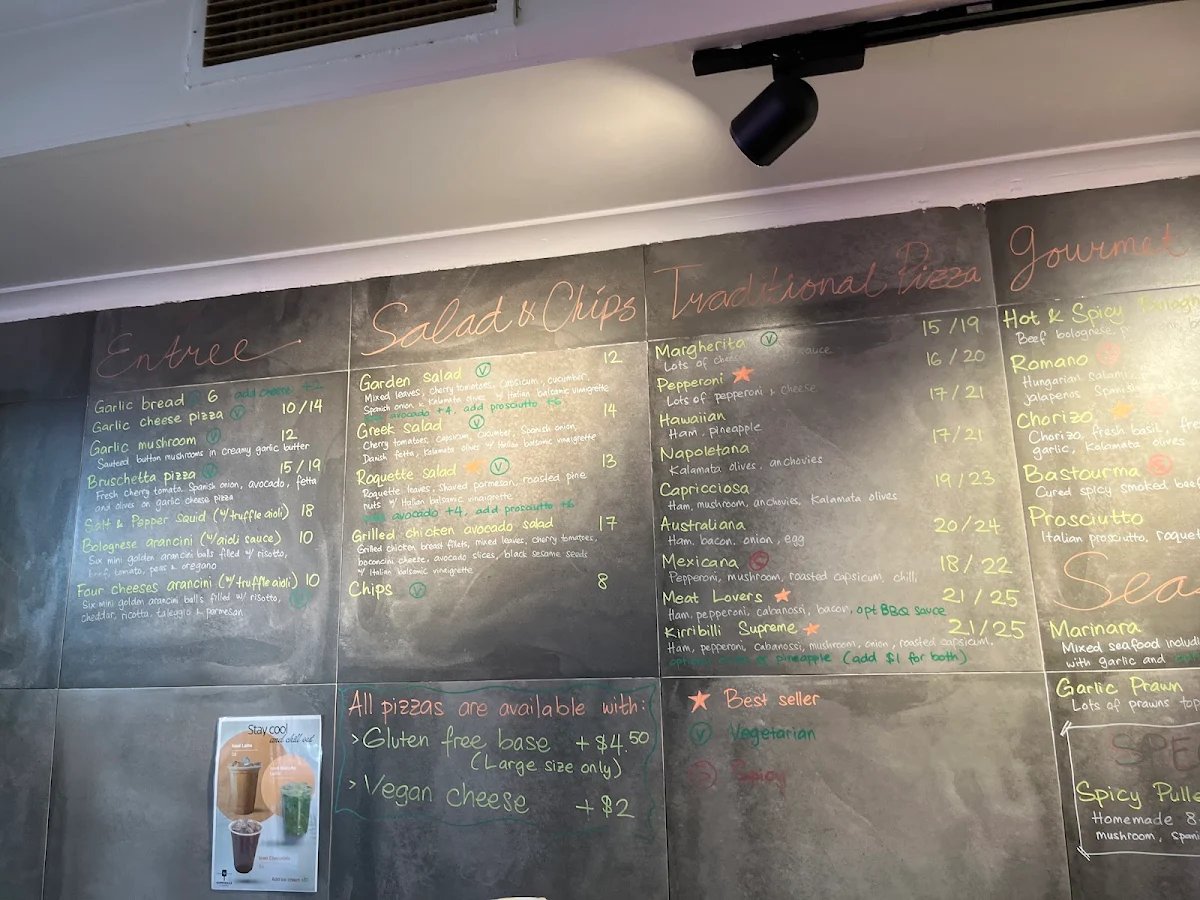 Entree
Garlic bread 6 add cheese +2
Garlic cheese pizza V 10/14
Garlic mushroom V 12
Sauteed button mushrooms in creamy garlic butter
Bruschetta pizza V 15/19
Fresh cherry tomato, Spanish onion, avocado, fetta
and olives on garlic cheese pizza
Salt & Pepper Squid (w/truffle aioli) 18
Bolognese arancini (w/aioli sauce) 10
Six mini golden arancini balls filled w/ risotto,
beef, tomato, peas & oregano
Four cheeses arancini (w/truffle aioli) 10
Six mini golden arancini balls filled w/ risotto,
cheddar, ricotta, taleggio & parmesan
Salad & Chips
Garden salad V 12
Mixed leaves, cherry tomatoes, capsicum, cucumber
Spanish onion & Kalamata olives w/ Italian balsamic vinaigrette
avocado +4, add prosciutto +6
Greek salad V 14
Cherry tomatoes, capsicum, cucumber, Spanish onion,
Danish fetta, Kalamata olives w/ Italian balsamic vinaigrette
Roquette salad V 13
Roquette leaves, shaved parmesan, roasted pine
nuts w/ Italian balsamic vinaigrette
avocado +4, add prosciutto +6
Grilled chicken avocado salad 17
Grilled chicken breast fillets, mixed leaves, cherry tomatoes,
bocconcini cheese, avocado slices, black sesame seeds
w/ Italian balsamic vinaigrette
Chips V 8
All pizzas are available with:
>Gluten free base +$4.50
(Large size only)
>Vegan cheese +$2
Stay cool
and chill out
Iced Latte
Traditional Pizza
Margherita V 15/19
Lots of cheese sauce
Pepperoni 16/20
Lots of pepperoni & cheese
Hawaiian 17/21
Ham, pineapple
Napoletana 17/21
Kalamata olives, anchovies
Capricciosa 19/23
Ham, mushroom, anchovies, Kalamata olives
Australiana 20/24
Ham, bacon, onion, egg
Mexicana S 18/22
Pepperoni, mushroom, roasted capsicum, chilli
Meat Lovers 21/25
Ham, pepperoni, cabanossi, bacon, opt BBQ sauce
Kirribilli Supreme 21/25
Ham, pepperoni, cabanossi, mushroom, onion, roasted capsicum,
pineapple (add $1 for both)
Best seller
V Vegetarian
S Spicy
Gourmet
Hot & Spicy
Beef bolognese,
Romano S
Hungarian salami,
jalapenos,
Chorizo
Chorizo, fresh basil,
garlic, Kalamata olives
Bastourma S
Cured spicy smoked beef
Prosciutto
Italian prosciutto,
Sea
Marinara
Mixed seafood
with garlic and
Garlic Prawn
Lots of prawns
SPE
Spicy Pulle
Homemade 8
mushroom,